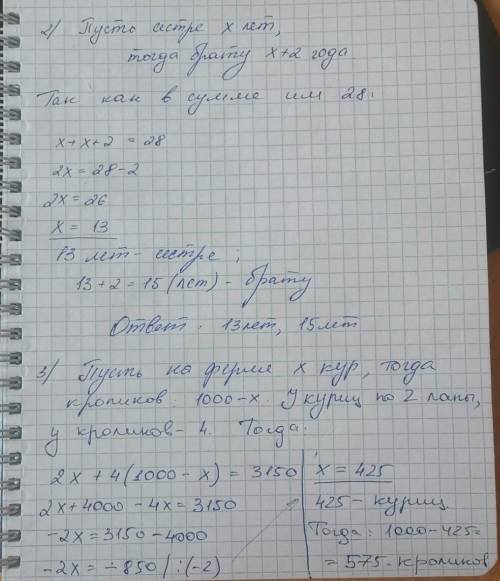 2) Пусть сестре x лет,
тогда брату x+2 года
Так как в сумме им 28:
x+x+2 = 28
2x = 28-2
2x = 26
x = 13
13 лет - сестре ;
13+2 = 15 (лет) - брату
Ответ: 13 лет, 15 лет
3) Пусть на ферме x кур, тогда
кроликов: 1000-x. У куриц по 2 лапы,
у кроликов - 4. Тогда:
2x + 4(1000-x) = 3150
2x+4000 - 4x = 3150
-2x = 3150-4000
-2x = -850 | :(-2)
x = 425
425 - куриц.
Тогда: 1000-425=
= 575 - кроликов